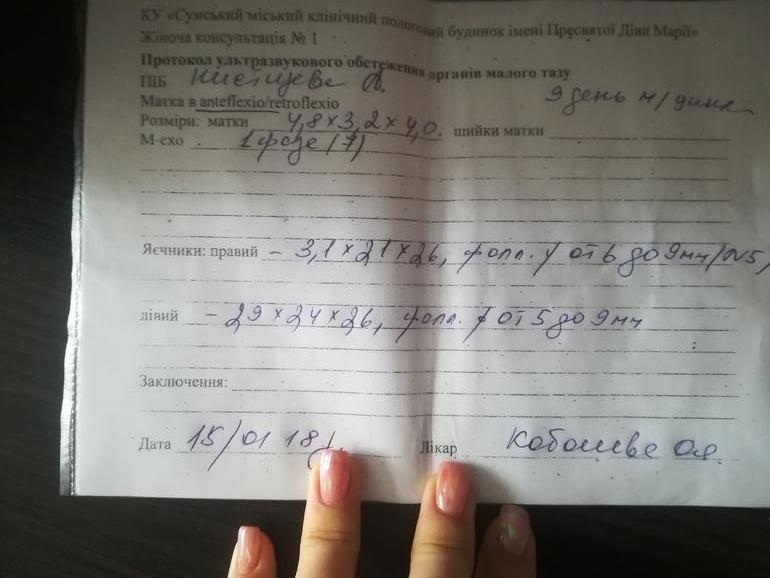 КУ «Сумський міський клінічний пологовий будинок імені Пресвятої Діви Марії»
Жіноча консультація № 1
Протокол ультразвукового обстеження органів малого тазу
ПІБ
9 день м/цикл
Матка в anteflexio/retroflexio
Розміри: матки 4,8 × 3,2 × 4,0. шийки матки
М-ехо 1 фаза (7)
Яєчники: правий – 3,1 × 21 × 26, фолл. от 6 до 9мм (N5)
лівий – 29 × 24 × 26, фолл. от 5 до 9мм
Заключення:
Дата 15/01 18 Лікар